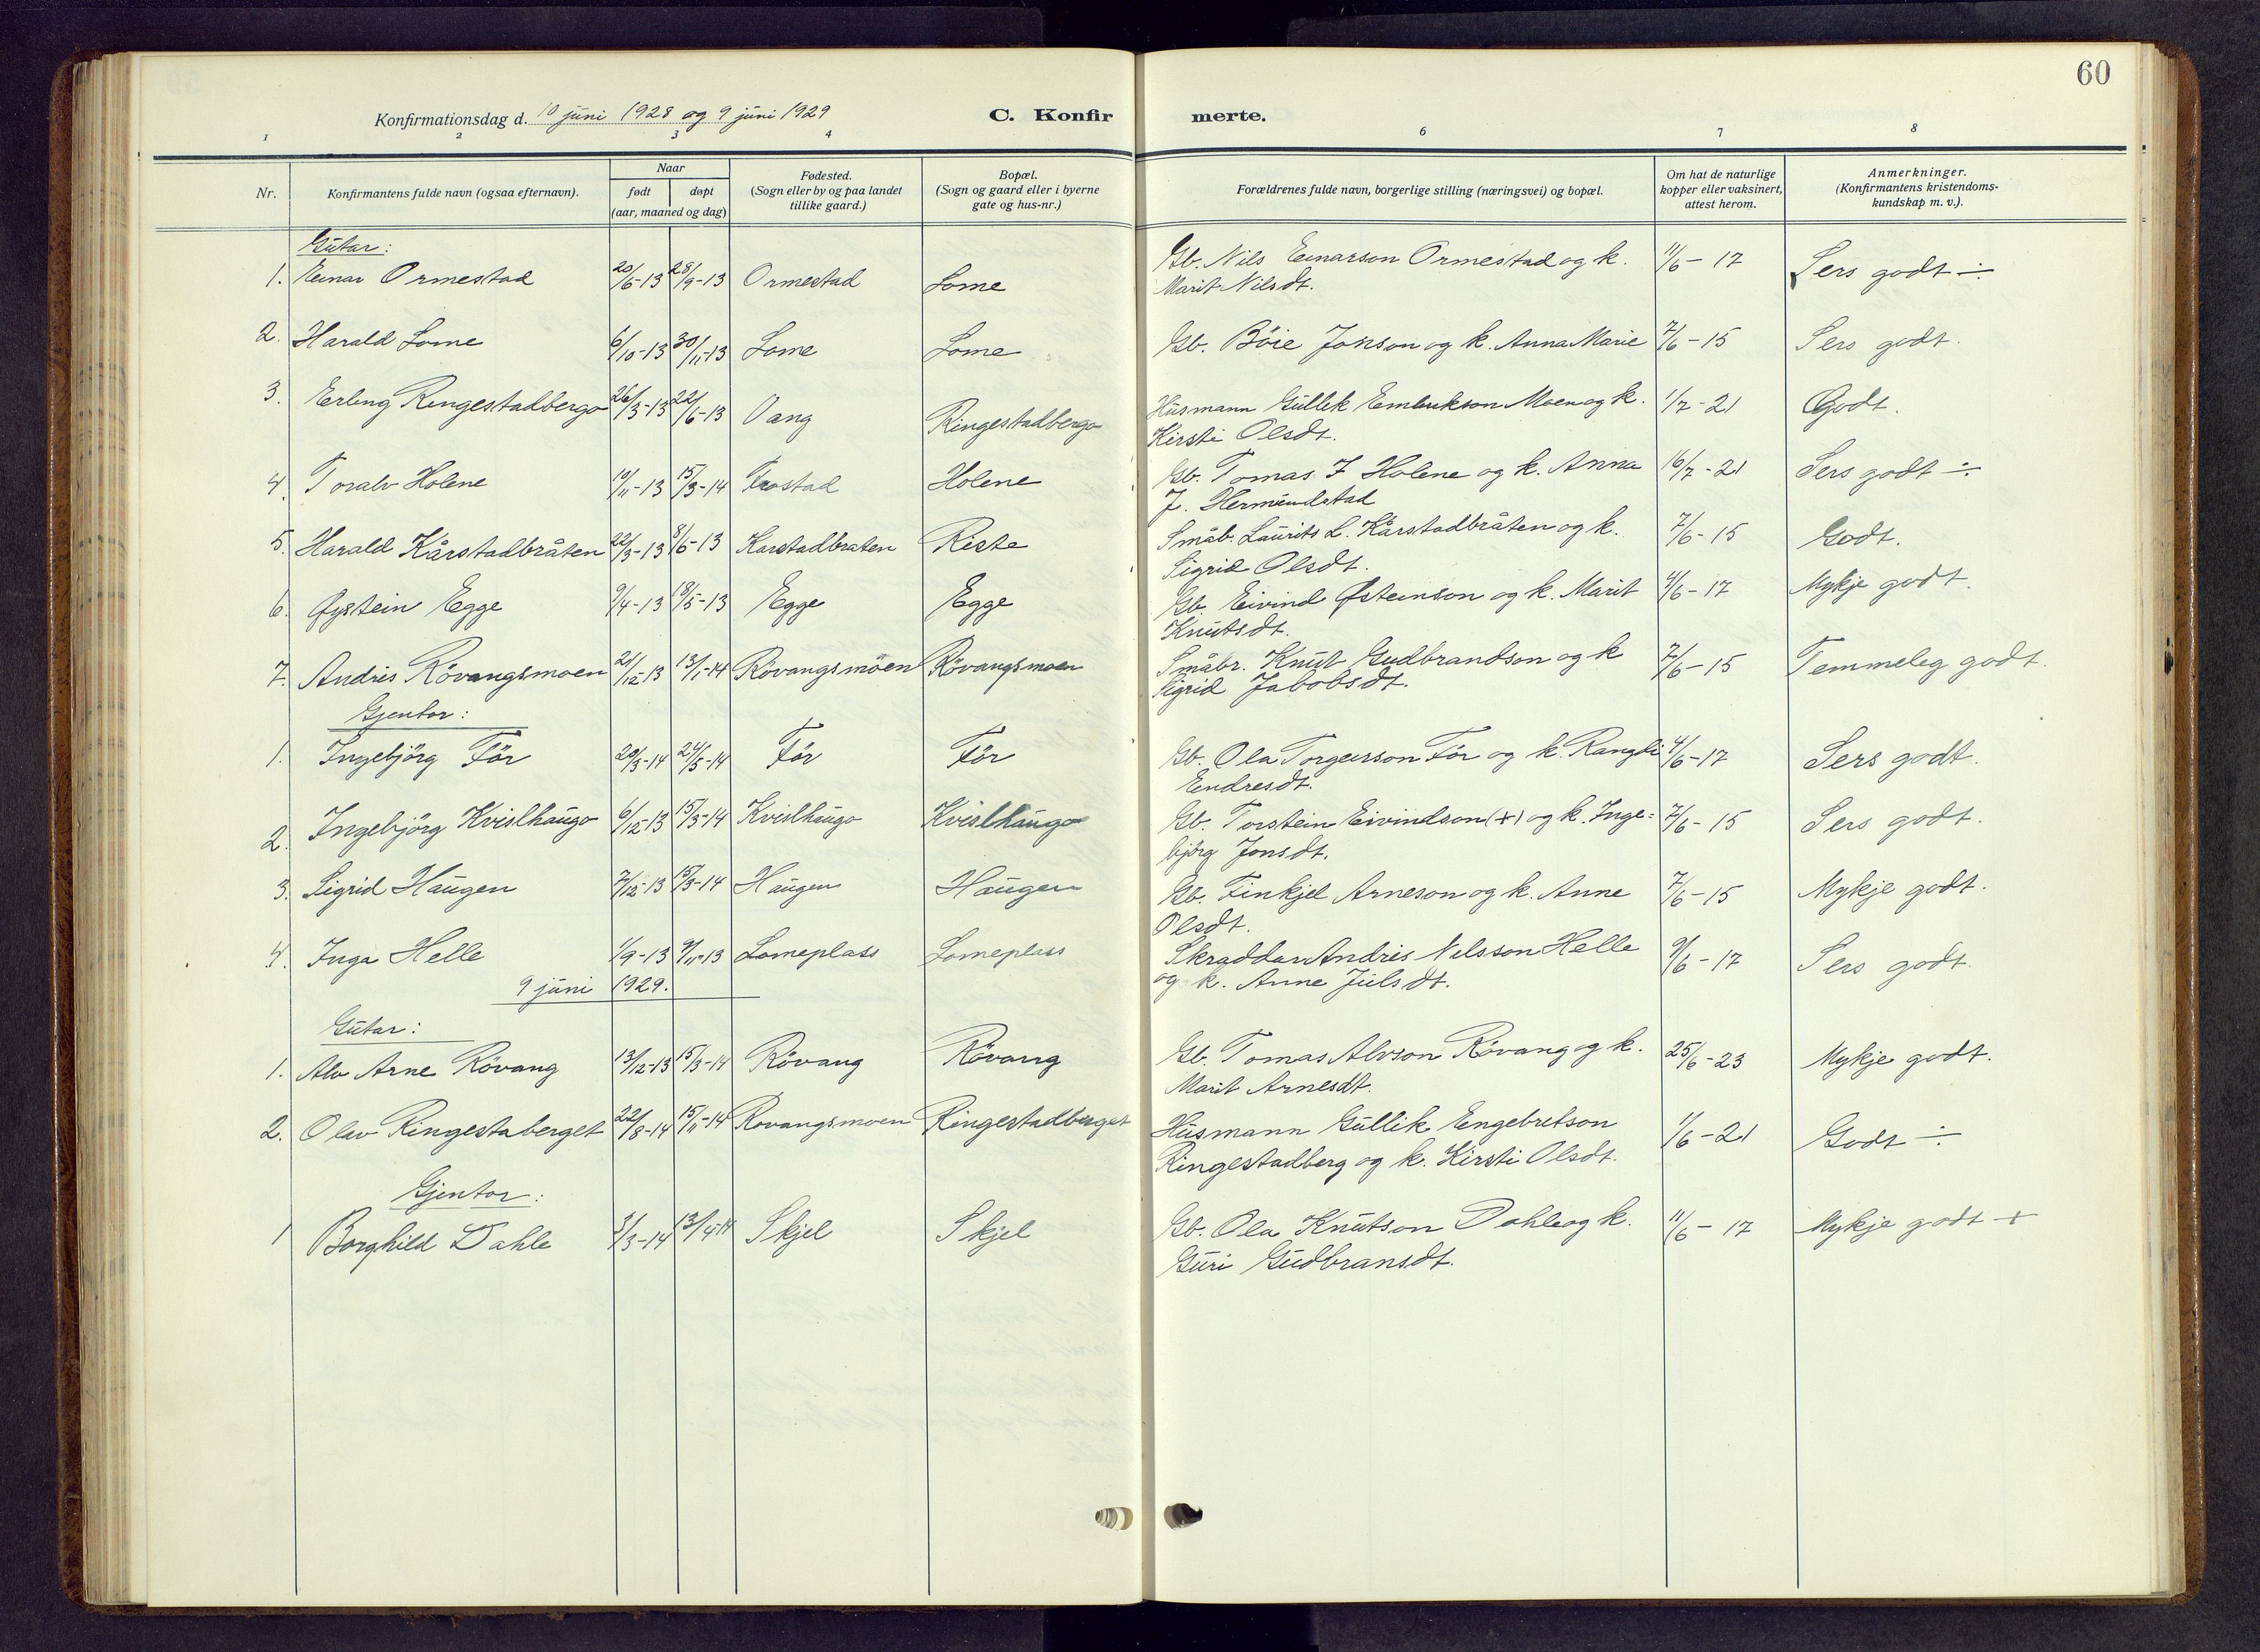 60
Konfirmationsdag d. 10 juni 1928 og 9 juni 1929 C. Konfirmerte.
1 2 3 4 6 7 8
Nr. Konfirmantens fulde navn (ogsaa efternavn). Naar født døpt (aar, maaned og dag) Fødested. (Sogn eller by og paa landet tillike gaard.) Bopæl. (Sogn og gaard eller i byerne gate og hus-nr.) Forældrenes fulde navn, borgerlige stilling (næringsvei) og bopæl. Om hat de naturlige kopper eller vaksinert, attest herom. Anmerkninger. (Konfirmantens kristendoms-kundskap m. v.).
Gutar:
1. Einar Ormestad 20/6-13 28/9-13 Ormestad Lome Gb. Nils Einarson Ormestad og k. 11/6-17 Sers godt ÷
Marit Nilsdt.
2. Harald Lome 6/10-13 30/11-13 Lome Lome Gb. Böie Jonson og k. Anna Marie 7/6-15 Sers godt.
3. Erling Ringestadbergo 26/3-13 22/6-13 Vang Ringestadbergo Husmann Gullik Embrikson Moen og k. 1/7-21 Godt.
Kirsti Olsdt.
4. Toralv Holene 10/11-13 15/3-14 Trostad Holene Gb. Tomas J Holene og k. Anna 16/7-21 Sers godt ÷
J. Hermundstad
5. Harald Kårstadbråten 22/3-13 8/6-13 Karstadbraten Riste Småb. Laurits L. Kårstadbråten og k. 7/6-15 Godt.
Sigrid Olsdt.
6. Øystein Egge 9/4-13 18/5-13 Egge Egge Gb. Eivind Østeinson og k. Marit 4/6-17 Mykje godt.
Knutsdt.
7. Andris Rövangsmoen 21/12-13 13/1-14 Rövangsmöen Rövangsmoen Småbr. Knut Gudbrandson og k 7/6-15 Temmeleg godt.
Sigrid Jabobsdt.
Gjentor:
1. Ingebjörg För 20/3-14 24/5-14 För För Gb. Ola Torgerson För og k. Rangdi 4/6-17 Sers godt.
Endresdt.
2. Ingebjörg Kvislhaugo 6/12-13 15/3-14 Kvislhaugo Kvislhaugo Gb. Torstein Eivindson (+) og k. Inge= 7/6-15 Sers godt.
björg Jonsdt.
3. Sigrid Haugen 7/12-13 15/3-14 Haugen Haugen Gb. Finkjel Arneson og k. Anne 7/6-15 Mykje godt.
Olsdt.
4. Inga Helle 1/9-13 9/11-13 Lomeplass Lomeplass Skraddar Andris Nilsson Helle 9/6-17 Sers godt.
og k. Anne Julsdt.
9 juni 1929.
Gutar:
1. Alv Arne Rövang 13/12-13 15/3-14 Rövang Rövang Gb. Tomas Alvson Rövang og k. 25/6-23 Mykje godt.
Marit Arnesdt.
2. Olav Ringestaberget 22/8-14 15/11-14 Rovangsmoen Ringestadberget Husmann Gullik Engebretson 1/6-21 Godt ÷
Ringestadberg og k. Kirsti Olsdt.
Gjentor:
1 Borghild Dahle 3/3-14 13/4-14 Skjel Skjel Gb. Ola Knutson Dahle og k. 11/6-17 Mykje godt +
Guri Gudbransdt.